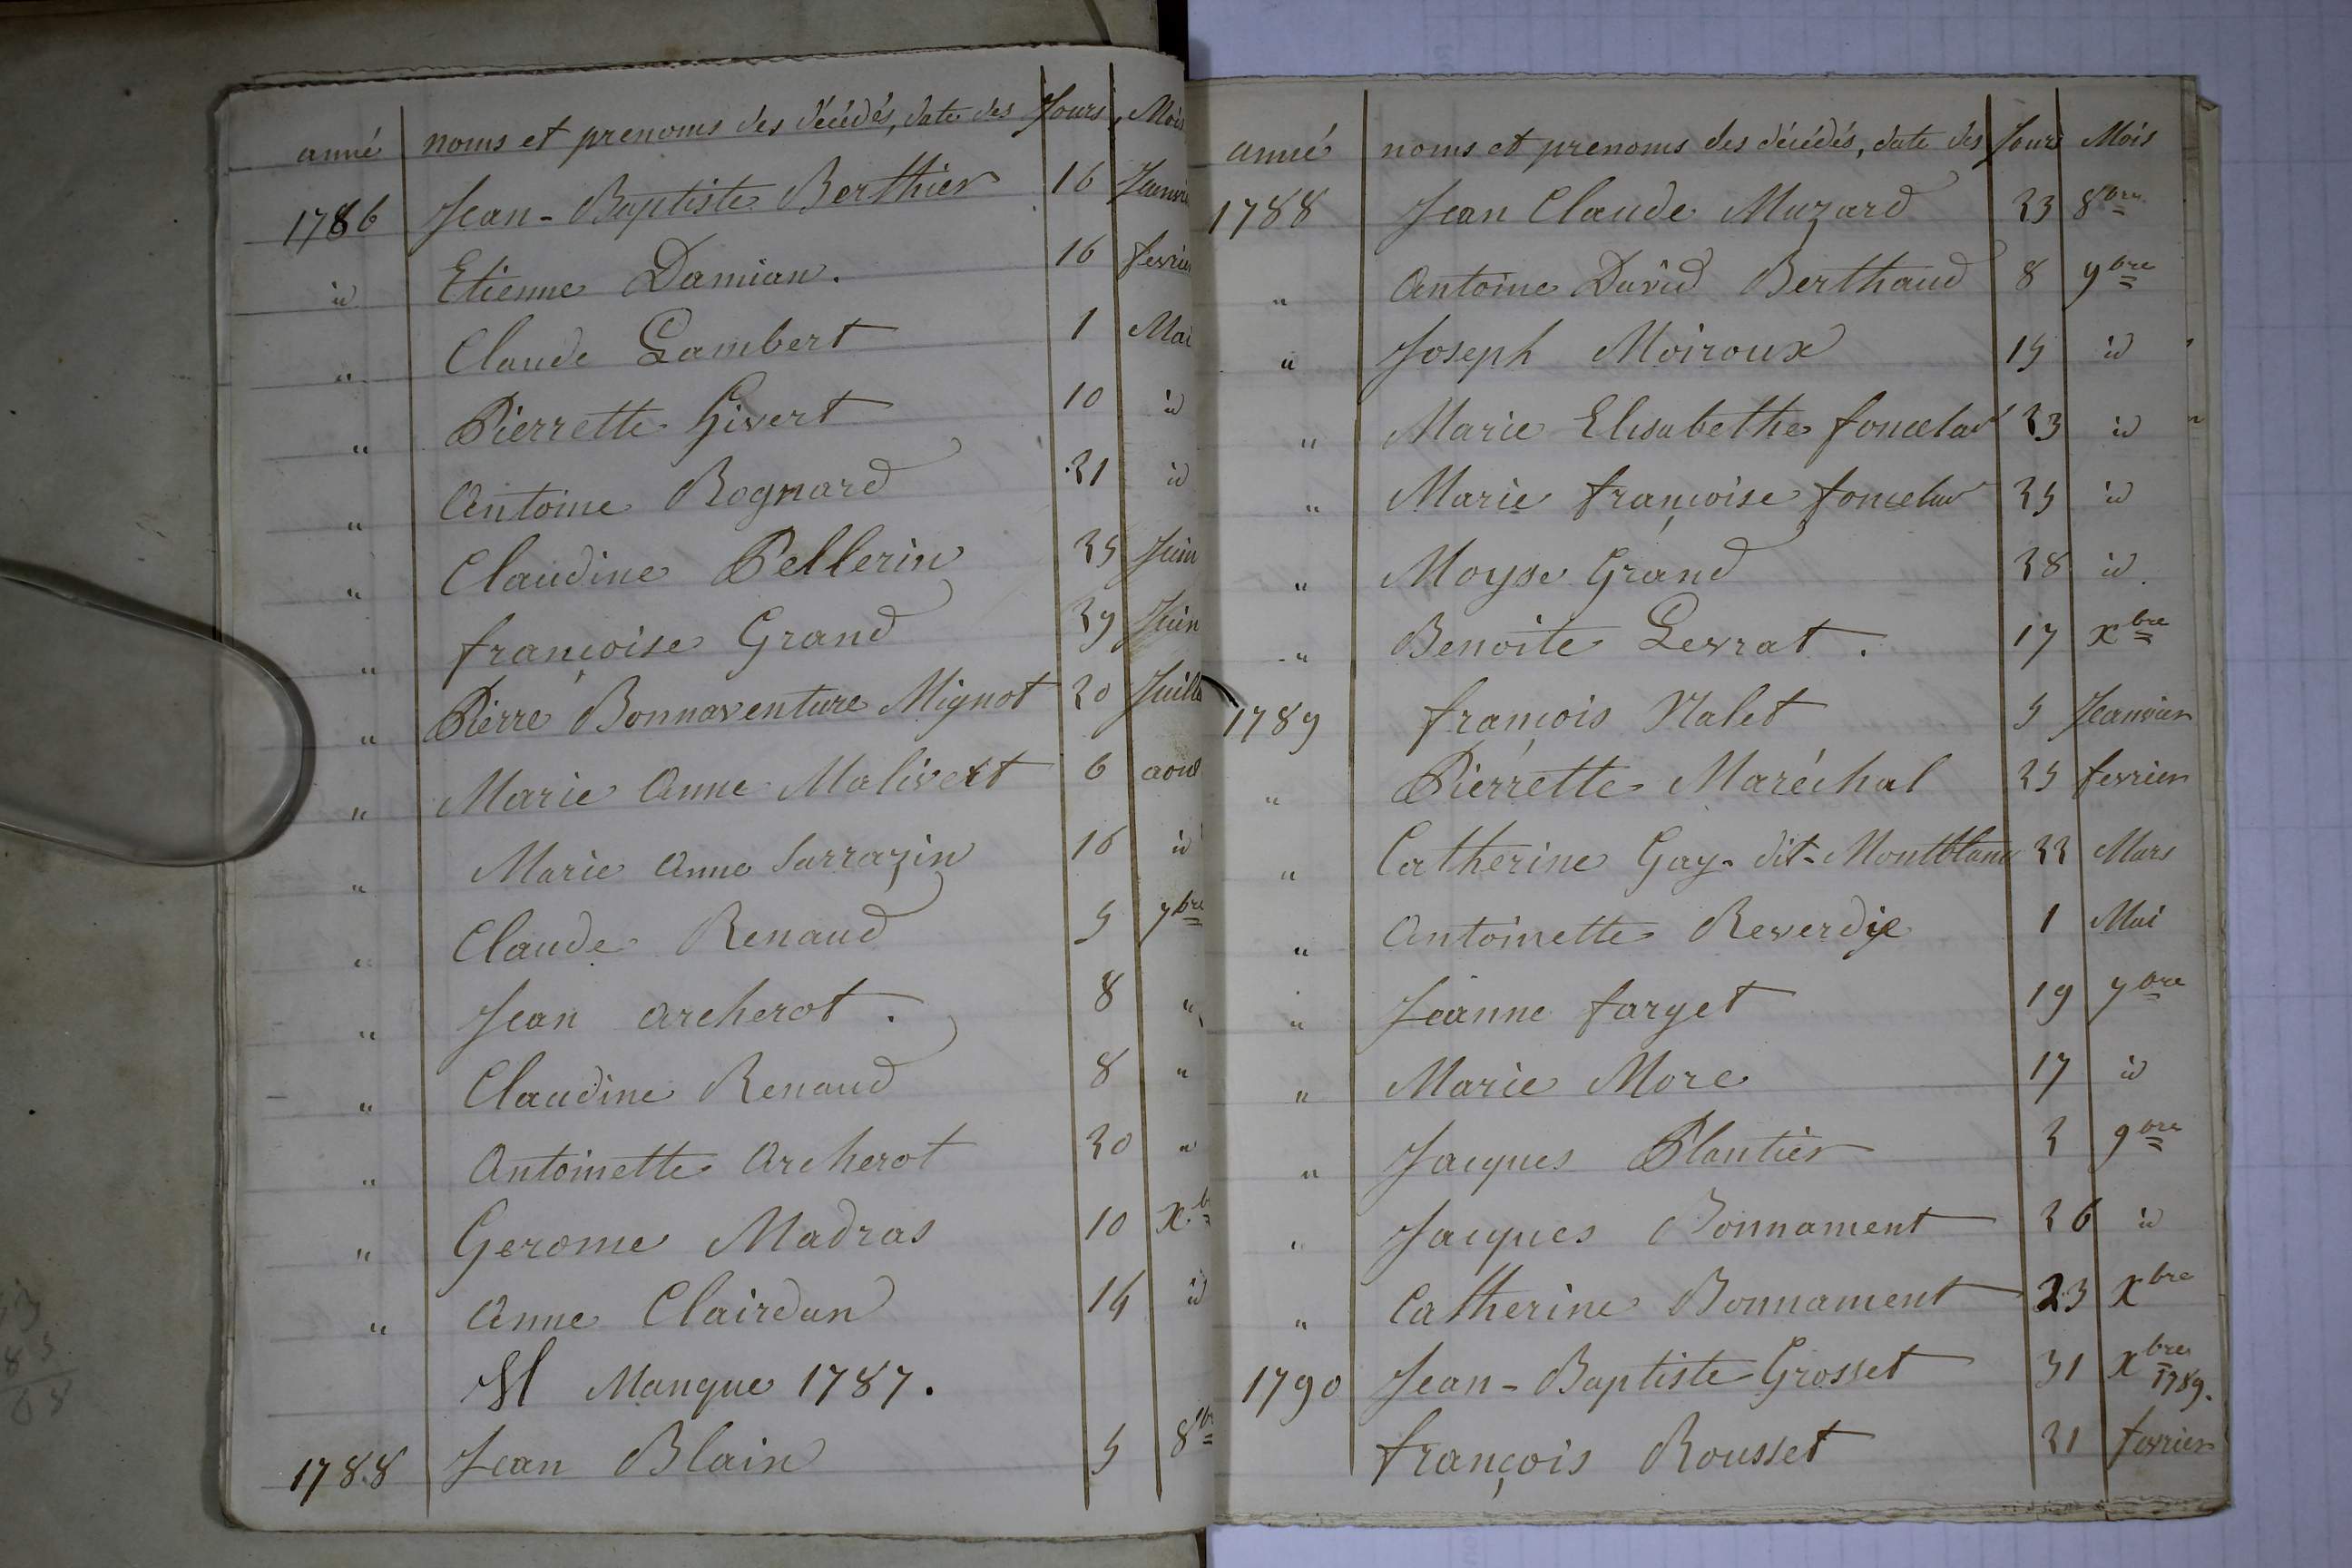 anné noms et prenoms des décédés, date des Jours, Mois
1786 Jean-Baptiste Berthier 16 Janvi
id Etienne Damian. 16 fevrier
" Claude Lambert 1 Mai
" Pierrette Givert 10 id
" Antoine Rognard 21 id
" Claudine Pellerin 25 Juin
" françoise Grand 29 Juin
" Pierre Bonnaventure Mignot 20 Juille
" Marie Anne Malivert 6 aout
" Marie Anne Sarrazin 16 id
" Claude Renaud 5 7bre
" Jean Archerot. 8 "
" Claudine Renaud 8 "
" Antoinette Archerot 20 "
" Gerome Madras 10 X.b
" Anne Clairdan 14 id
Il Manque 1787.
1788 Jean Blain 5 8br
anné noms et prenoms des décédés, date des Jours Mois
1788 Jean Claude Muzard 23 8bre
" Antoine David Berthaud 8 9bre
" Joseph Moiroux 15 id
" Marie Elisabethe 23 id
" Marie françoise 25 id
" Moyse Grand 28 id.
" Benoite Levrat. 17 xbre
1789 françois Nalet 5 Jeanvier
" Pierrette Maréchal 25 fevrier
" Catherine Gay-dit-Montblanc 22 Mars
" Antoinette Reverdie 1 Mai
" Jeanne farget 19 7bre
" Marie More 17 id
" Jacques Plantier 2 9bre
" Jacques Bonnament 26 id
" Catherine Bonnament 23 Xbre
1790 Jean-Baptiste Grosset 31 Xbre 1789.
françois Rousset 21 fevrier